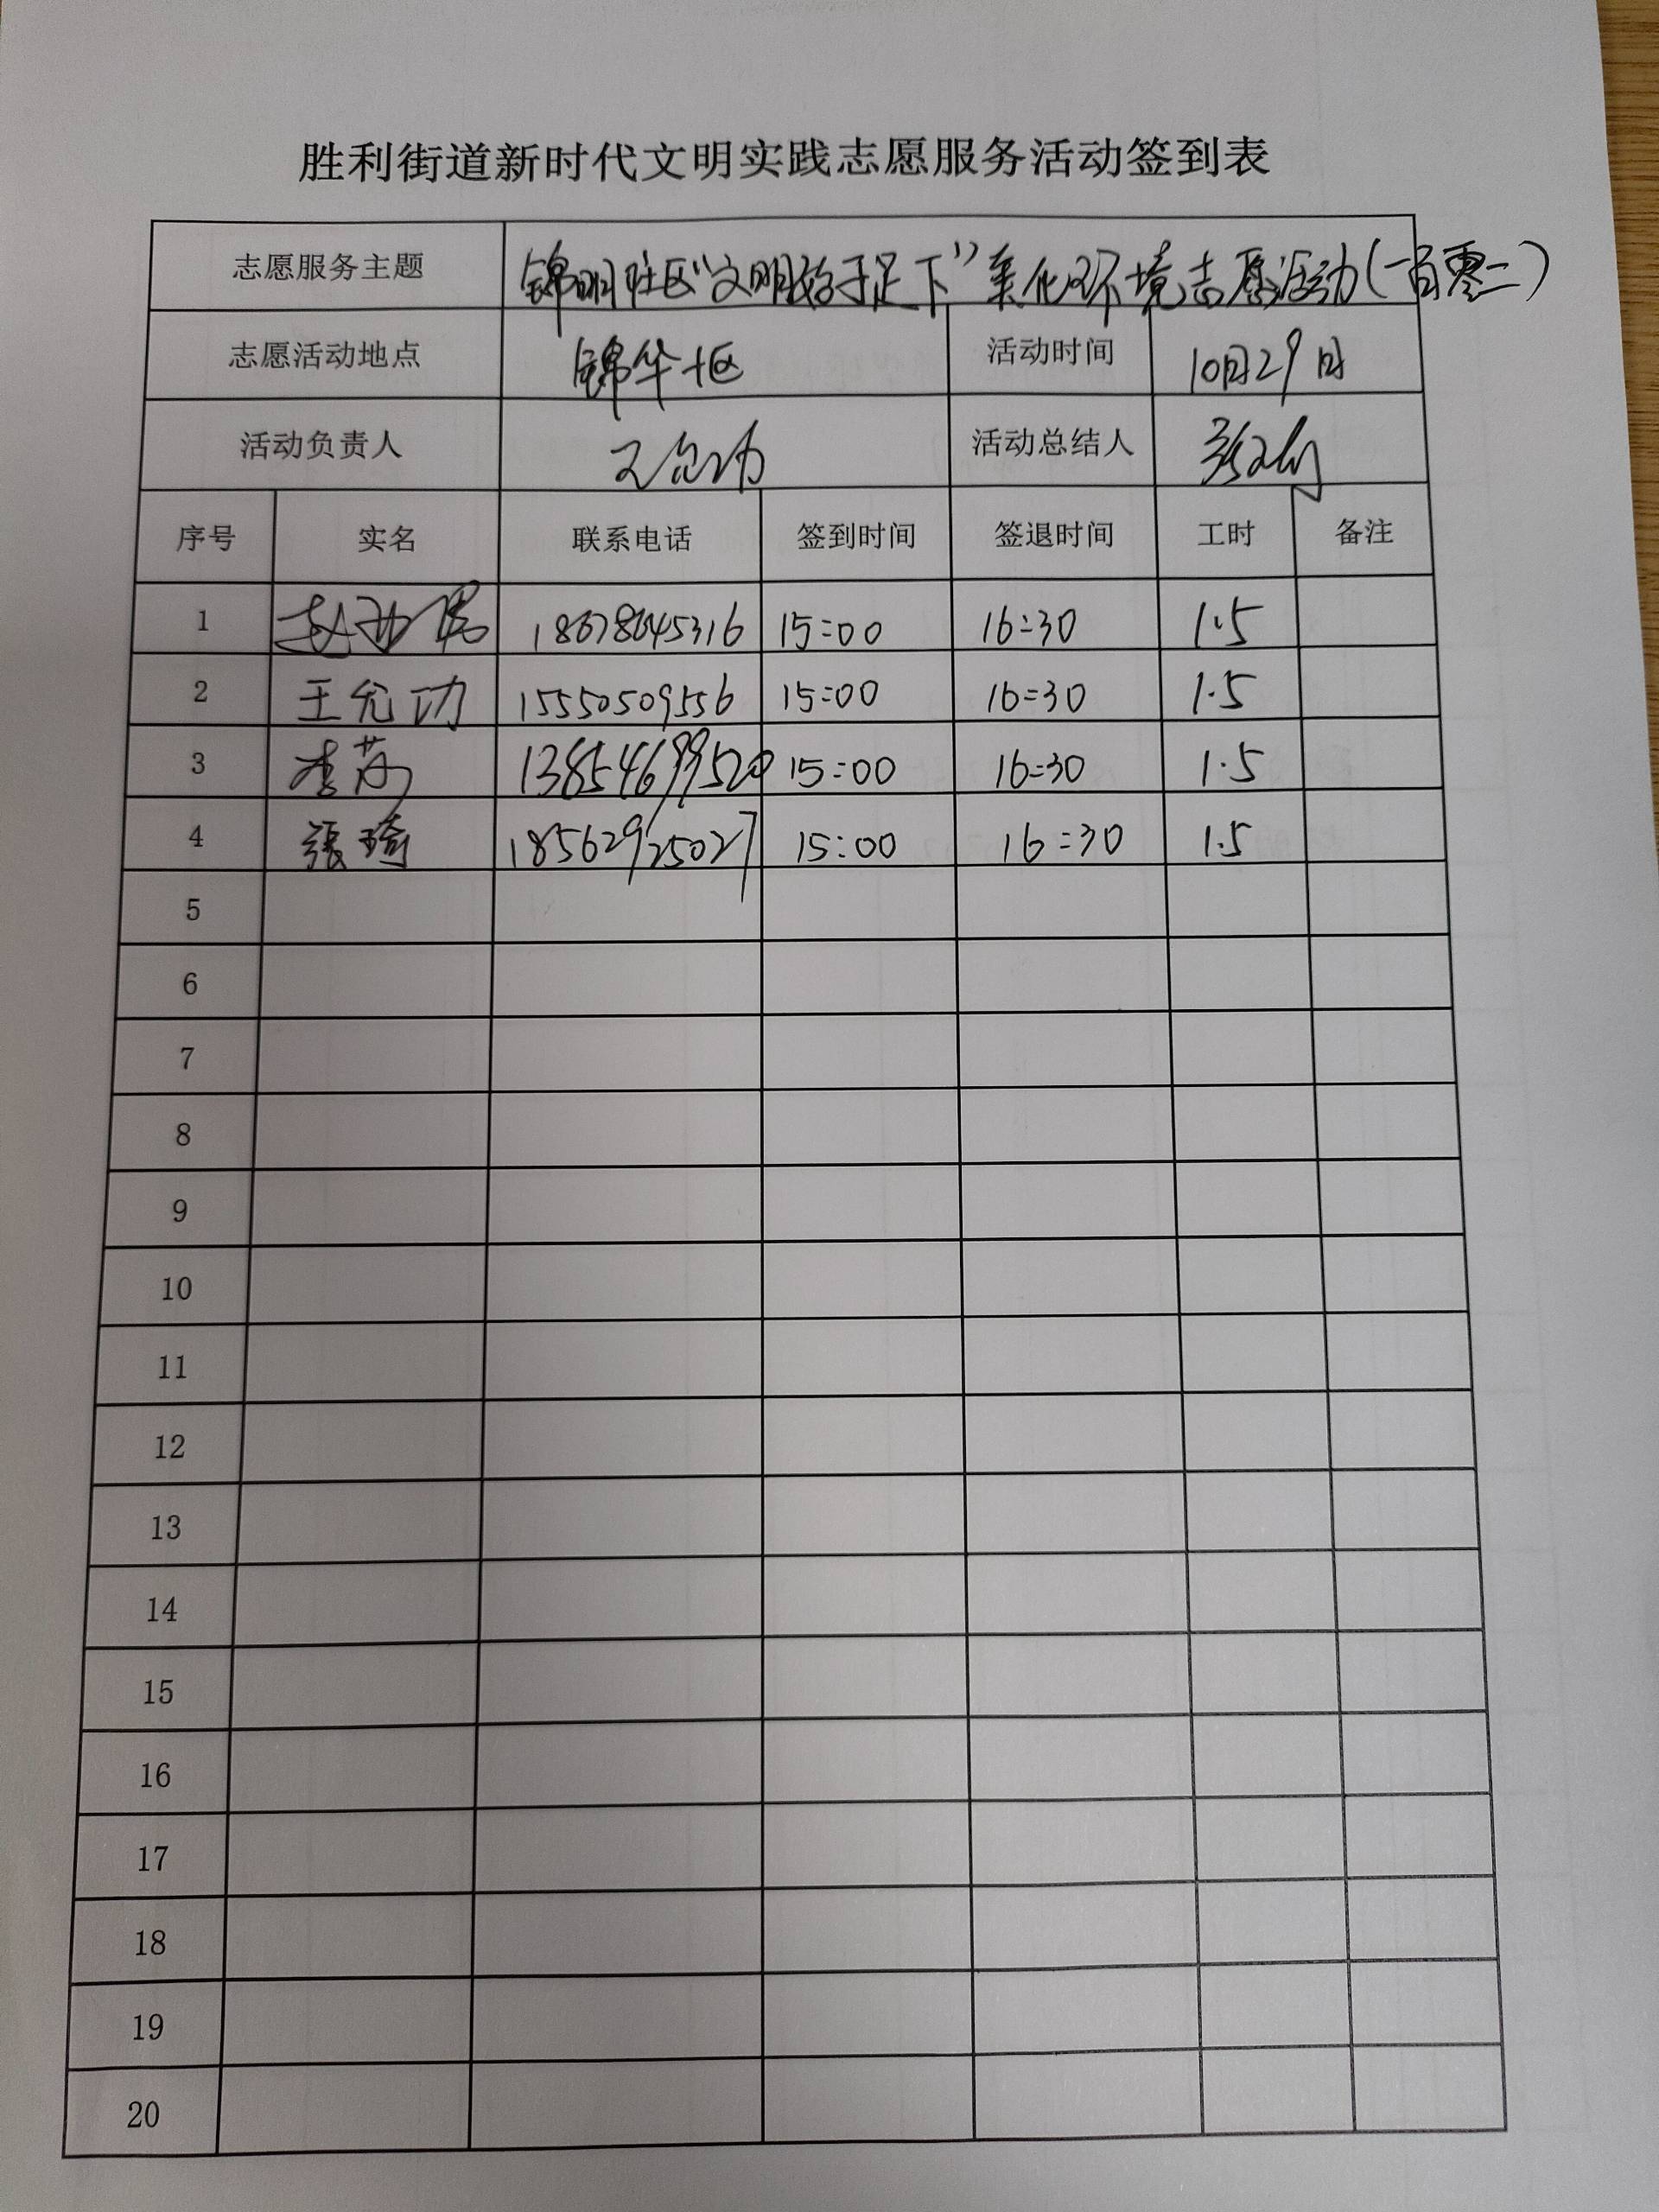 胜利街道新时代文明实践志愿服务活动签到表
志愿服务主题 锦明社区“文明始于足下”美化环境志愿活动(一百零二)
志愿活动地点 锦华十区 活动时间 10月29日
活动负责人 王允功 活动总结人
序号 实名 联系电话 签到时间 签退时间 工时 备注
1 18678645316 15:00 16:30 1.5
2 王允功 15550509556 15:00 16:30 1.5
3 李芬 13854699520 15:00 16:30 1.5
4 張琦 18562925027 15:00 16:30 1.5
5
6
7
8
9
10
11
12
13
14
15
16
17
18
19
20